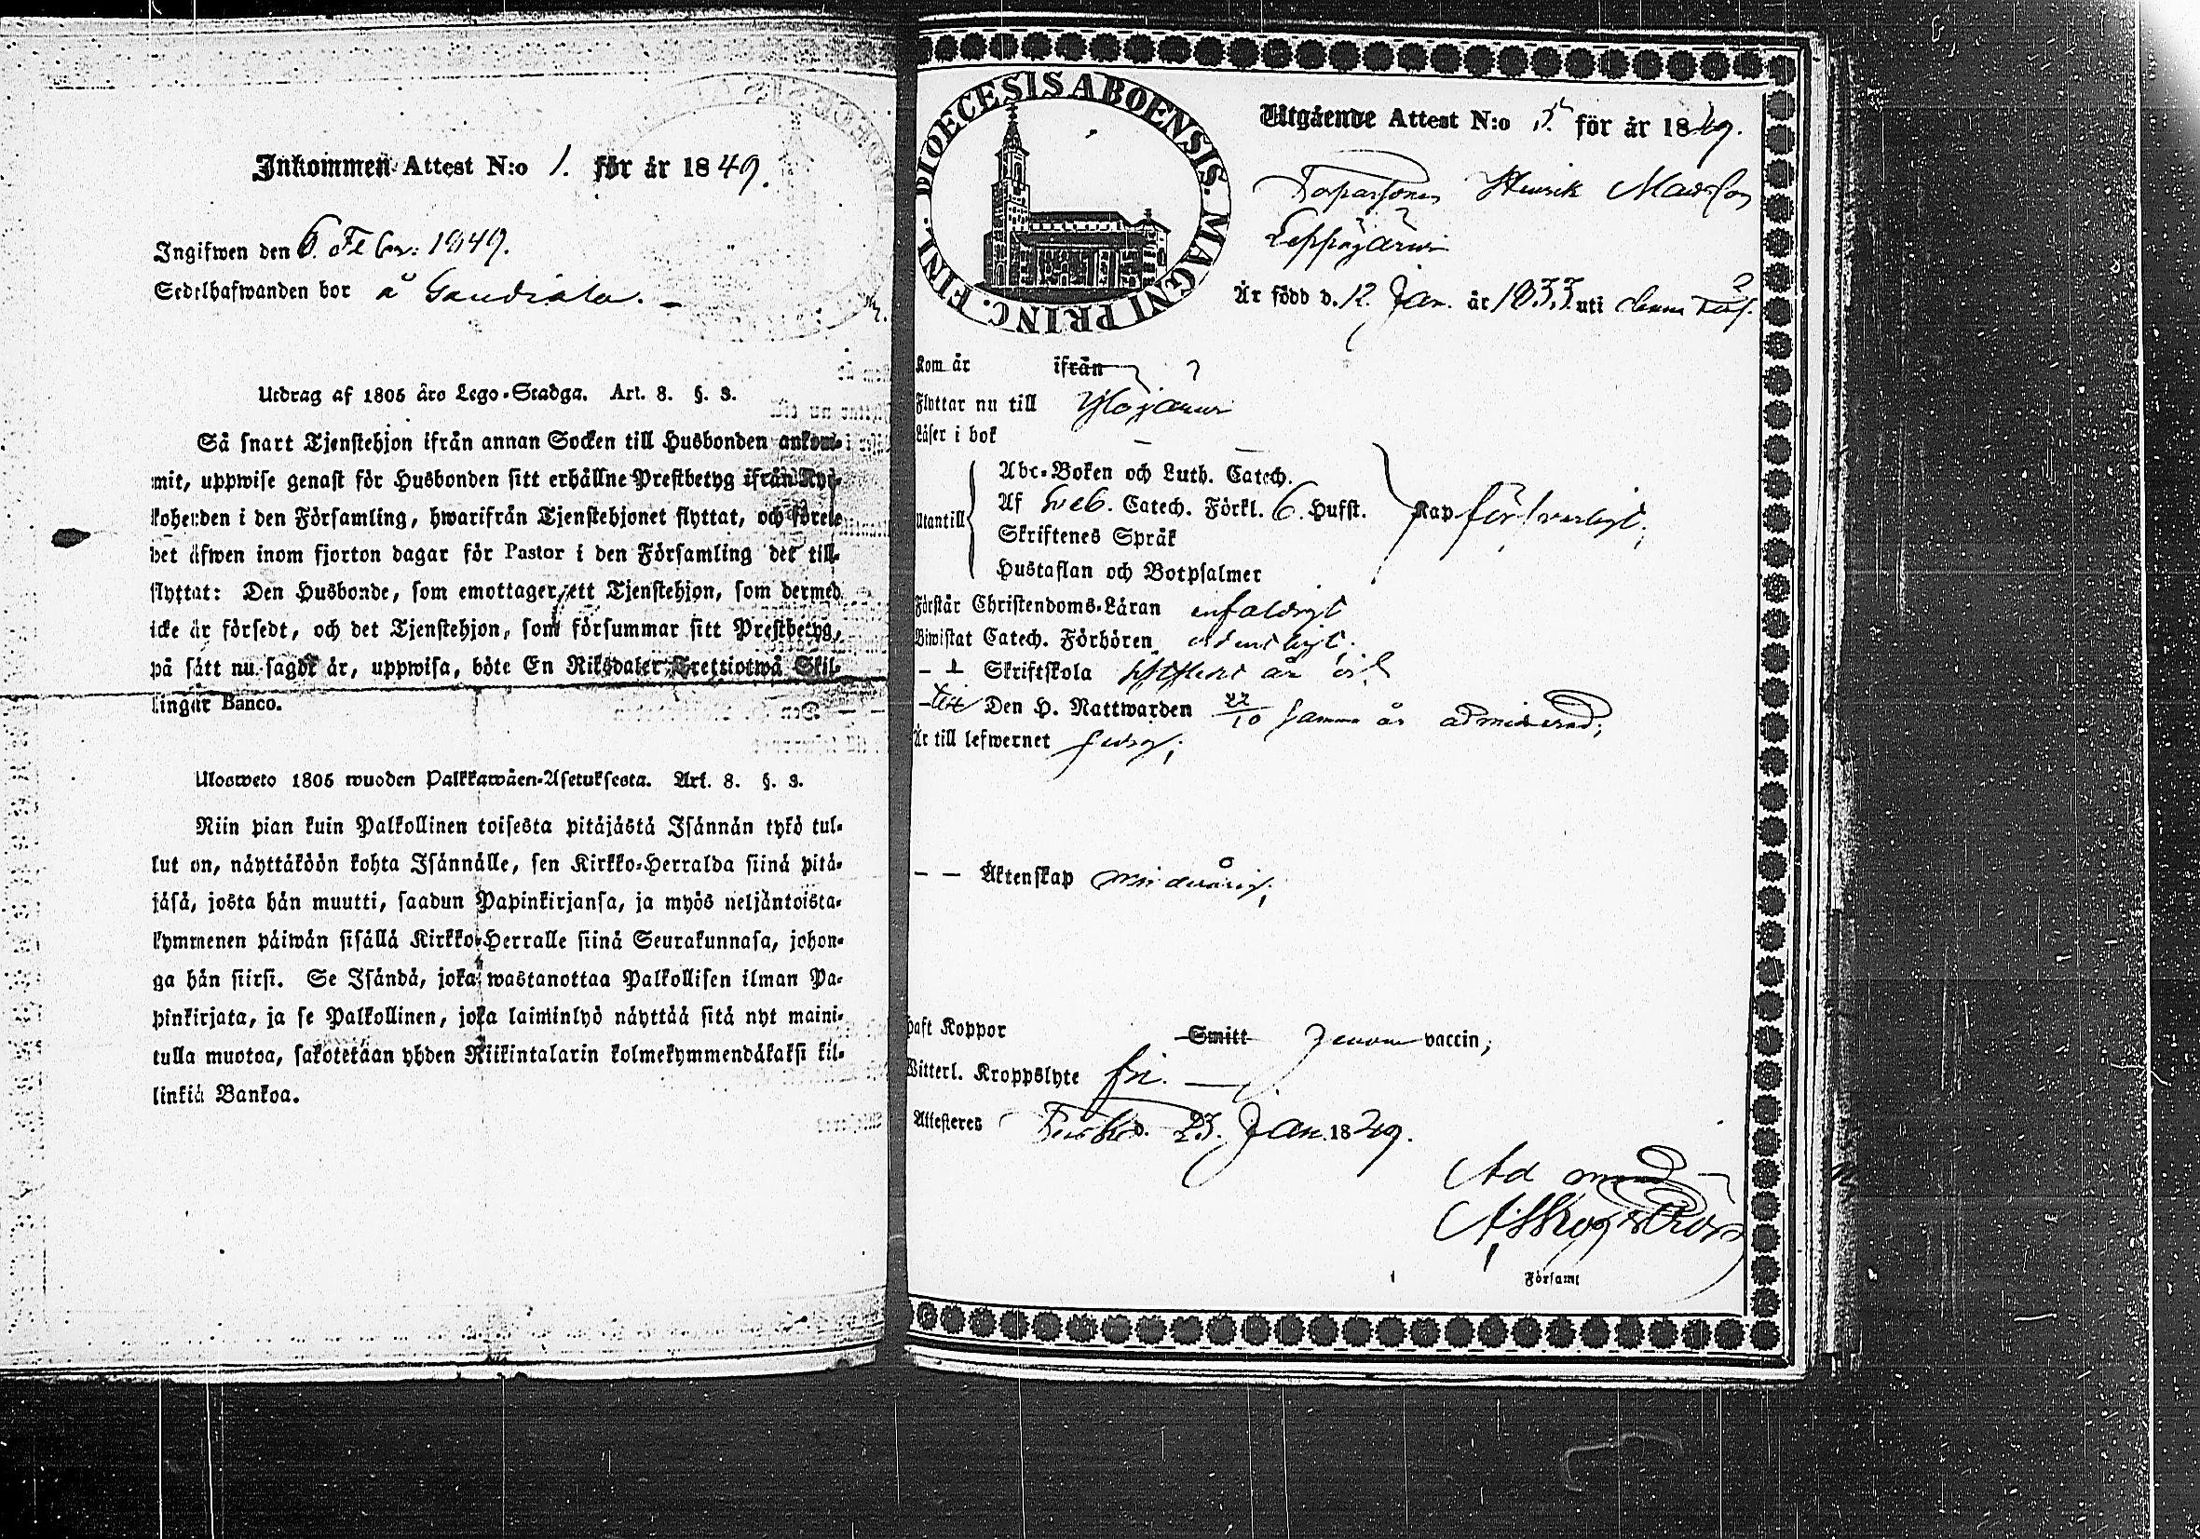 Inkommen Attest N:o 1. för år 1849.
Ingifwen den 6. Febr: 1849.
Sedelhafwanden bor å
Utdrag af 1805 års Lego-Stadga. Art. 8. §. 3.
Så snart Tjenstehjon ifrån annan Socken till Husbonden ankom-
mit, uppwise genast för Husbonden sitt erhållne Prestbetyg ifrån Kyr-
koherden i den Församling, hwarifrån Tjenstehjonet flyttat, och förete
det äfwen inom fjorton dagar för Pastor i den Församling det till-
flyttat: Den Husbonde, som emottager ett Tjenstehjon, som dermed
icke är försedt, och det Tjenstehjon, som försummar sitt Prestbetyg,
på sått nu sagdt är, uppwisa, böte En Riksdaler Trettiotwå Skil-
lingar Banco.
Ulosweto 1805 wuoden Palkkawäen-Asetuksesta. Art. 8. §. 3.
Niin pian kuin Palkollinen toisesta pitäjästä Isännän tykö tul-
lut on, näyttäköön kohta Isännälle, sen Kirkko-Herralda siinä pitä-
jäsä, josta hän muutti, saadun Papinkirjansa, ja myös neljäntoista-
kymmenen päiwän sisällä Kirkko-Herralle siinä Seurakunnasa, johon-
ga hän siirsi. Se Isändä, joka wastanottaa Palkollisen ilman Pa-
pinkirjata, ja se Palkollinen, joka laiminlyö näyttää sitä nyt maini-
tulla muotoa, sakotetaan yhden Riikintalarin kolmekymmendäkaksi kil-
linkiä Bankoa.
DIOECESIS ABOENSIS. MAGNI PRINC. FINL.
Utgående Attest N:o 5. för år 1849.
Torparsonen Henrik Madsson
Leppäjärvi
Är född d. 12 Jan. år 1833 uti denna
Kom år ifrån
Flyttar nu till Ylöjärvi
Läser i bok
Abc-Boken och Luth. Catech.
Utantill Af Sveb. Catech. Förkl. 6. Hufst. Kap försvarligt;
Skriftenes Språk
Hustaflan och Botpsalmer
Förstår Christendoms-Läran enfaldigt
Biwistat Catech. Förhören ordentligt;
Skriftskola år
till Den H. Nattwarden 22/10 samma år admitterad;
Är till lefwernet
Äktenskap minderårig;
Haft Koppor Smitt genom vaccin;
Witterl. Kroppslyte fri.
Attesteres d. 23. Jan. 1849.
Ad mand
Församl